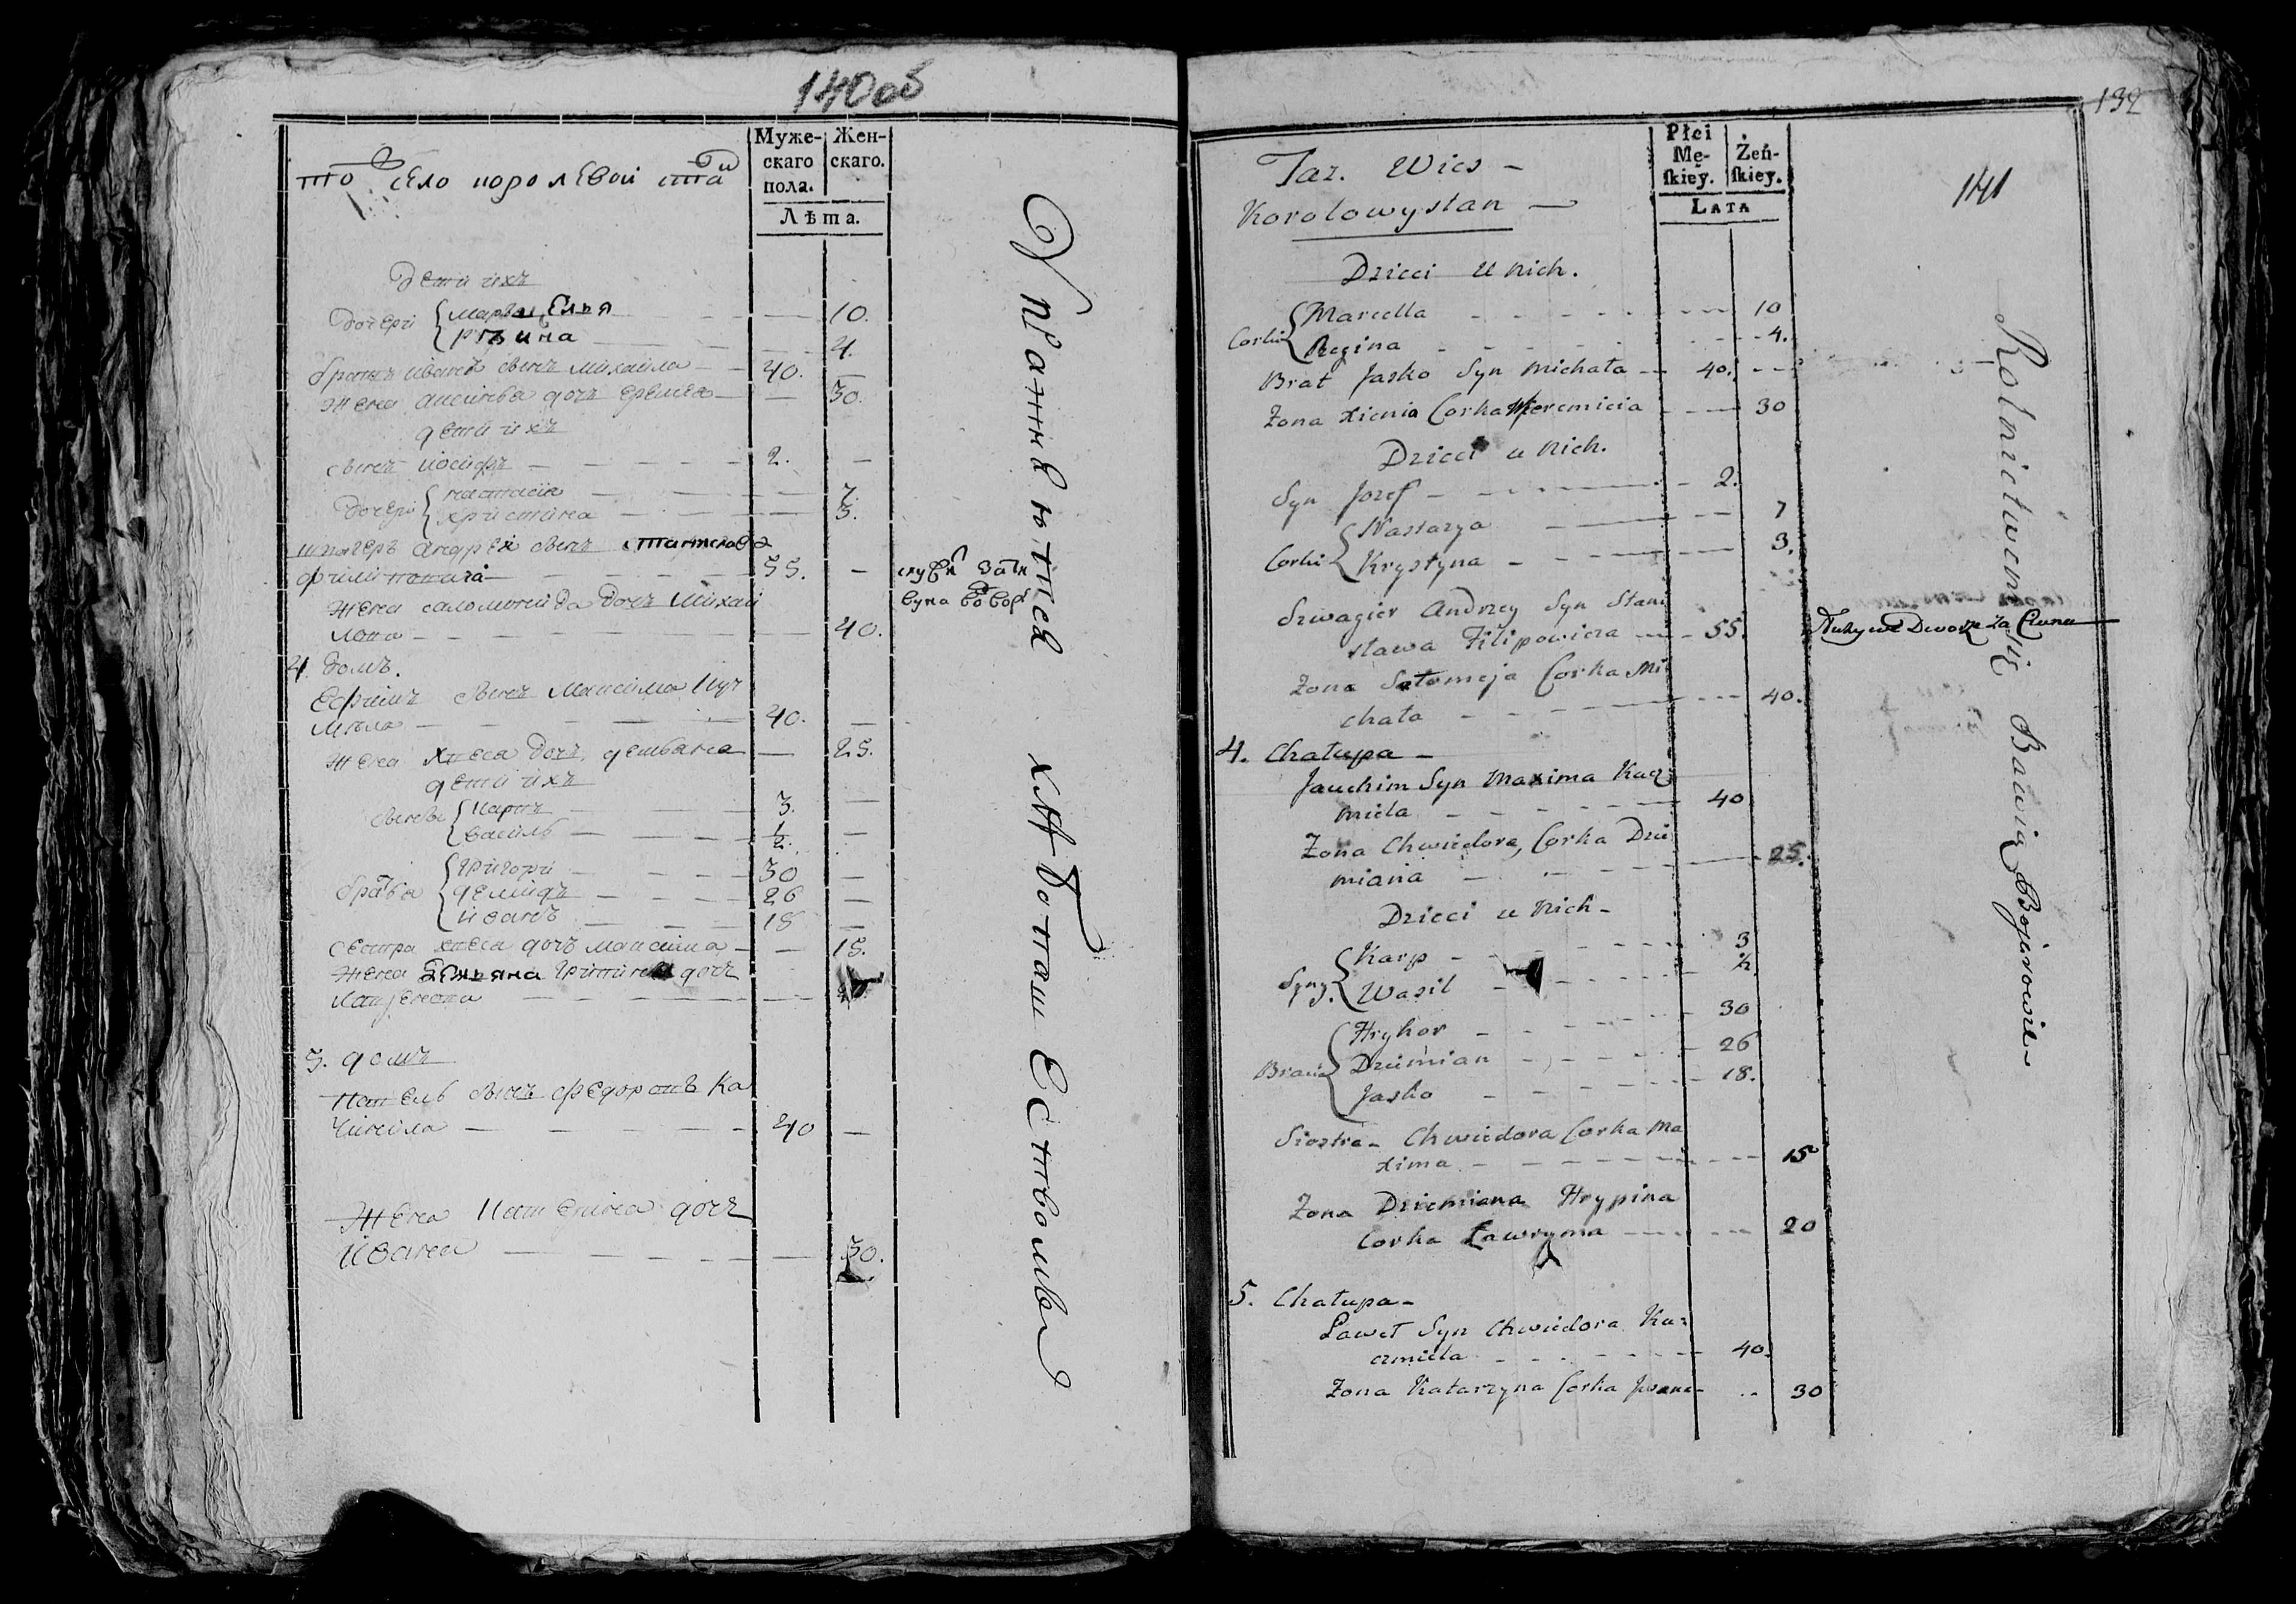 140 об
то село королевой стан
Муже-
скаго
пола.
Жен-
скаго.
Лѣта.
дети ихъ
дочери
10.
регина 4.
братъ иванъ сынъ михаила 40.
жена аксинья дочь еремея 30.
дети ихъ
сынъ иосифъ 2.
дочери
настасия 7.
христина 3.
швагеръ андрей сынъ станислава
филиповича 55.
служи за ти
вуна во дворѣ
жена саломеида дочь михай
лова 40.
4. домъ.
ефимъ сынъ максима куч
мѣла 40.
жена хвеся дочь демьяна 25.
дети ихъ
сыновья
карпъ 3.
василь 1/2.
братья
григори 30
демидъ 26
иванъ 18
сестра хвеся дочь максима 15.
жена демьяна грипина дочь
5. домъ
павелъ сынъ федоровъ ка
чмила 40
жена катерина дочь
ивана 30.
Упражняются хлѣбопашествомъ
132
141
Taz. Wies -
Korolowystan -
Płci
Mę-
skiey.
Żeń-
skiey.
LATA
Dzieci u nich.
Corki
Marcella 10
Regina 4.
Brat Jasko Syn Michała 40.
Zona Xienia Corka Jeremieia 30
Dzieci u nich.
Syn Jozef 2.
Corki
Nastazya 7
Krystyna 3.
Szwagier Andrzey Syn Stani
sława Filipowicza 55.
Służy we Dworze za Ciwuna
Zona Salomeja Corka Mi
chała 40.
4. Chałupa -
Jauchim Syn Maxima Kacz
miela 40
Zona Chwiedora, Corka Dzie
miana 25.
Dzieci u nich -
Syny.
Karp 3
Wasil ½.
Bracia
Hryhor 30
Dziemian 26
Jasko 18.
Siostra - Chwiedora Corka Ma
xima 15
Zona Dziemiana Hrypina
Corka Ławryma 20
5. Chałupa -
Paweł Syn Chwiedora Ka-
czmiela 40.
Zona Katarzyna Corka Jwana 30
Rolnictwem się Bawią Bojarowie